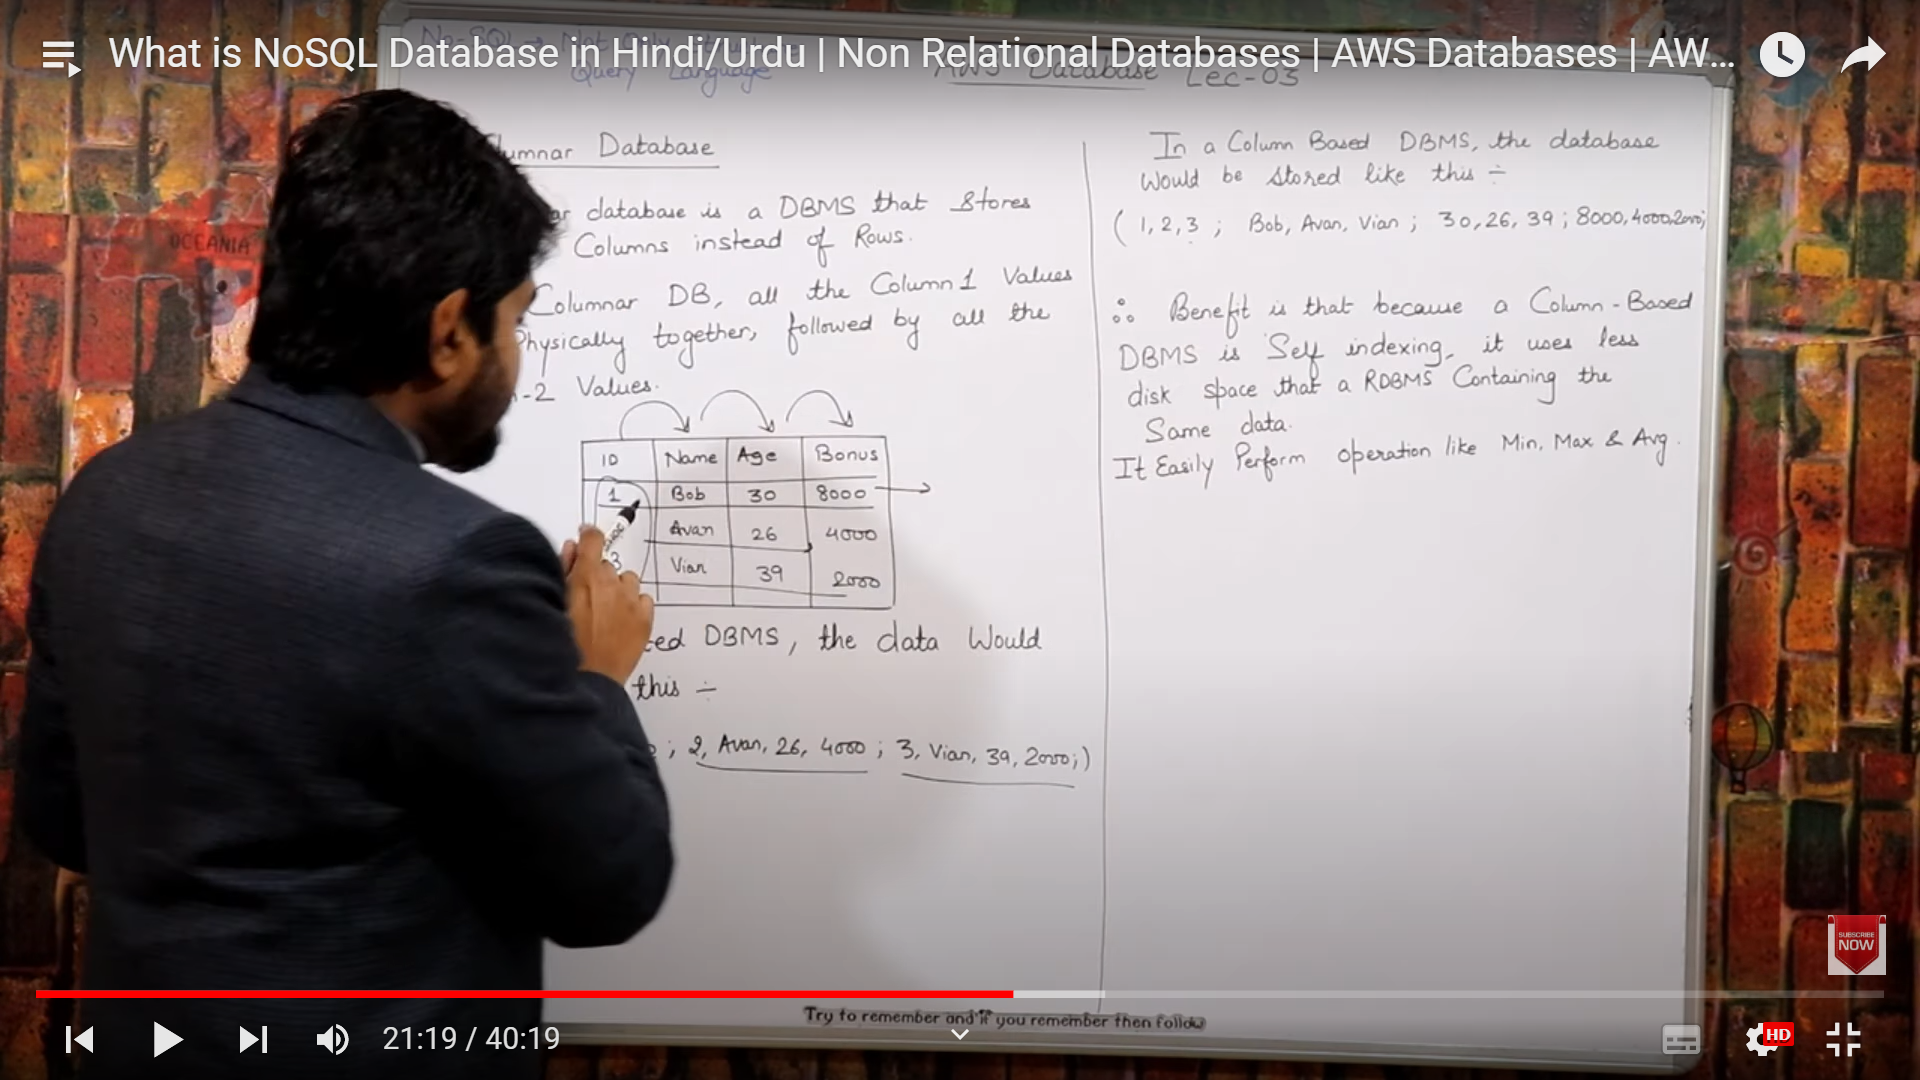 What is NoSQL Database in Hindi/Urdu | Non Relational Databases | AWS Databases | AW...
Query Language
AWS Database Lec-03
lumnar Database
ar database is a DBMS that Stores
Columns instead of Rows.
Columnar DB, all the Column 1 Values
Physically together, followed by all the
-2 Values.
ID Name Age Bonus
1 Bob 30 8000
Avan 26 4000
3 Vian 39 2000
ed DBMS, the data Would
this ÷
; 2, Avan, 26, 4000 ; 3, Vian, 39, 2000;)
In a Column Based DBMS, the database
Would be stored like this ÷
( 1, 2, 3 ; Bob, Avan, Vian ; 30, 26, 39 ; 8000, 4000, 2000;
∴ Benefit is that because a Column-Based
DBMS is Self indexing, it uses less
disk space that a RDBMS Containing the
Same data.
It Easily Perform operation like Min, Max & Avg.
OCEANIA
SUBSCRIBE
NOW
Try to remember and if you remember then follow
21:19 / 40:19
HD